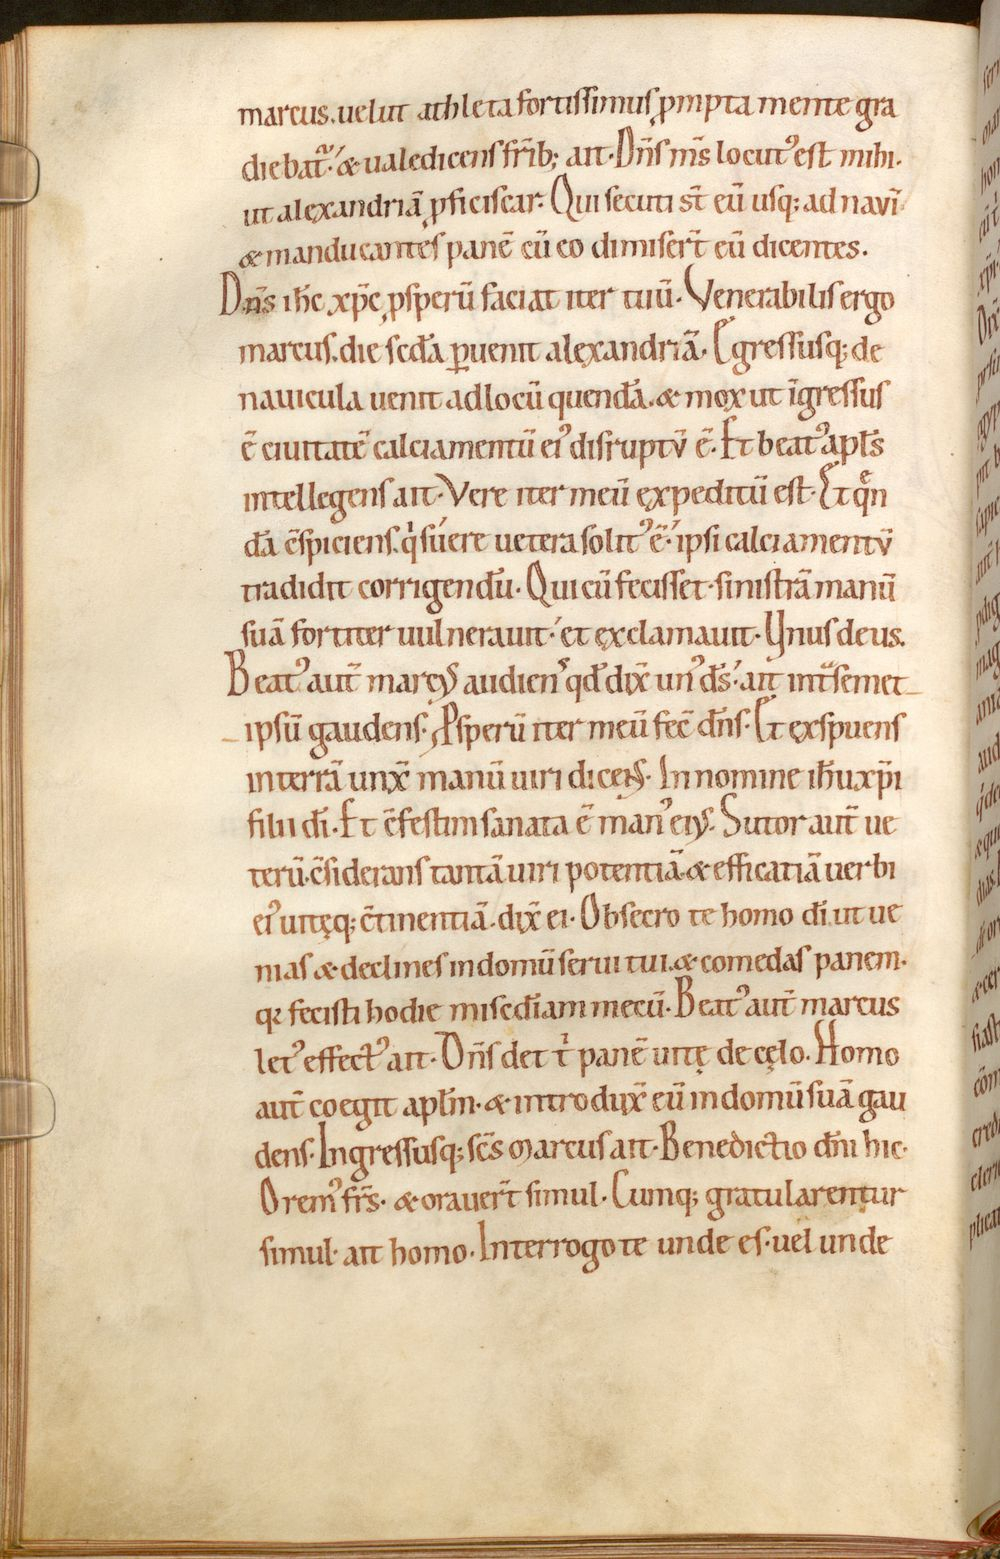 marcus. uelut athleta fortissimus ꝓmpta mente gra
diebat᷑. & ualedicens fr̄ib; ait. Dn̄s m̄s locut᾽ est mihi.
ut alexandriā ꝓficiscar. Qui secuti st̄ eū usq; ad nauī
& manducantes panē cū eo dimiser̄t eū dicentes.
Dn̄s ih̄c xp̄c ꝓsperū faciat iter tuū. Venerabilis ergo
marcus. die scd̄a ꝑuenit alexandriā. Egressusq; de
nauicula uenit ad locū quendā. & mox ut īgressus
ē ciuitatē calciamentū ei᾽ disruptū ē. Et beat᾽ apl̄s
intellegens ait. Vere iter meū expeditū est. Et quē
dā c̄spiciens. qⁱ suere uetera solit᾽ ē. ipsi calciamentū
tradidit corrigendū. Qui cū fecisset. sinistrā manū
suā fortiter uulnerauit. et exclamauit. Vnus deus.
Beat᾽ aut̄ marcus audiens qd̄ dix̄ un᾽ d̄s. ait int᷑ semet
ipsū gaudens. Ꝓsperū iter meū fec̄ dn̄s. Et exspuens
in terrā unx̄ manū uiri dicens. In nomine ih̄u xp̄i
filii dī. Et c̄festim sanata ē man᾽ eius. Sutor aut̄ ue
terū. c̄siderans tantā uiri potentiā. & efficatiā uerbi
ei᾽ uitęq; c̄tinentiā. dix̄ ei. Obsecro te homo dī. ut ue
nias & declines in domū serui tui. & comedas panem.
qꝛ fecisti hodie miscd̄iam mecū. Beat᾽ aut̄ marcus
let᾽ effect᾽ ait. Dn̄s det tⁱ panē uitę de cęlo. Homo
aut̄ coegit apl̄m. & introdux̄ eū in domū suā gau
dens. Ingressusq; sc̄s Marcus ait. Benedictio dn̄i hic.
Orem᾽ fr̄s. & orauer̄t simul. Cumq; gratularentur
simul. ait homo. Interrogo te unde es. uel unde